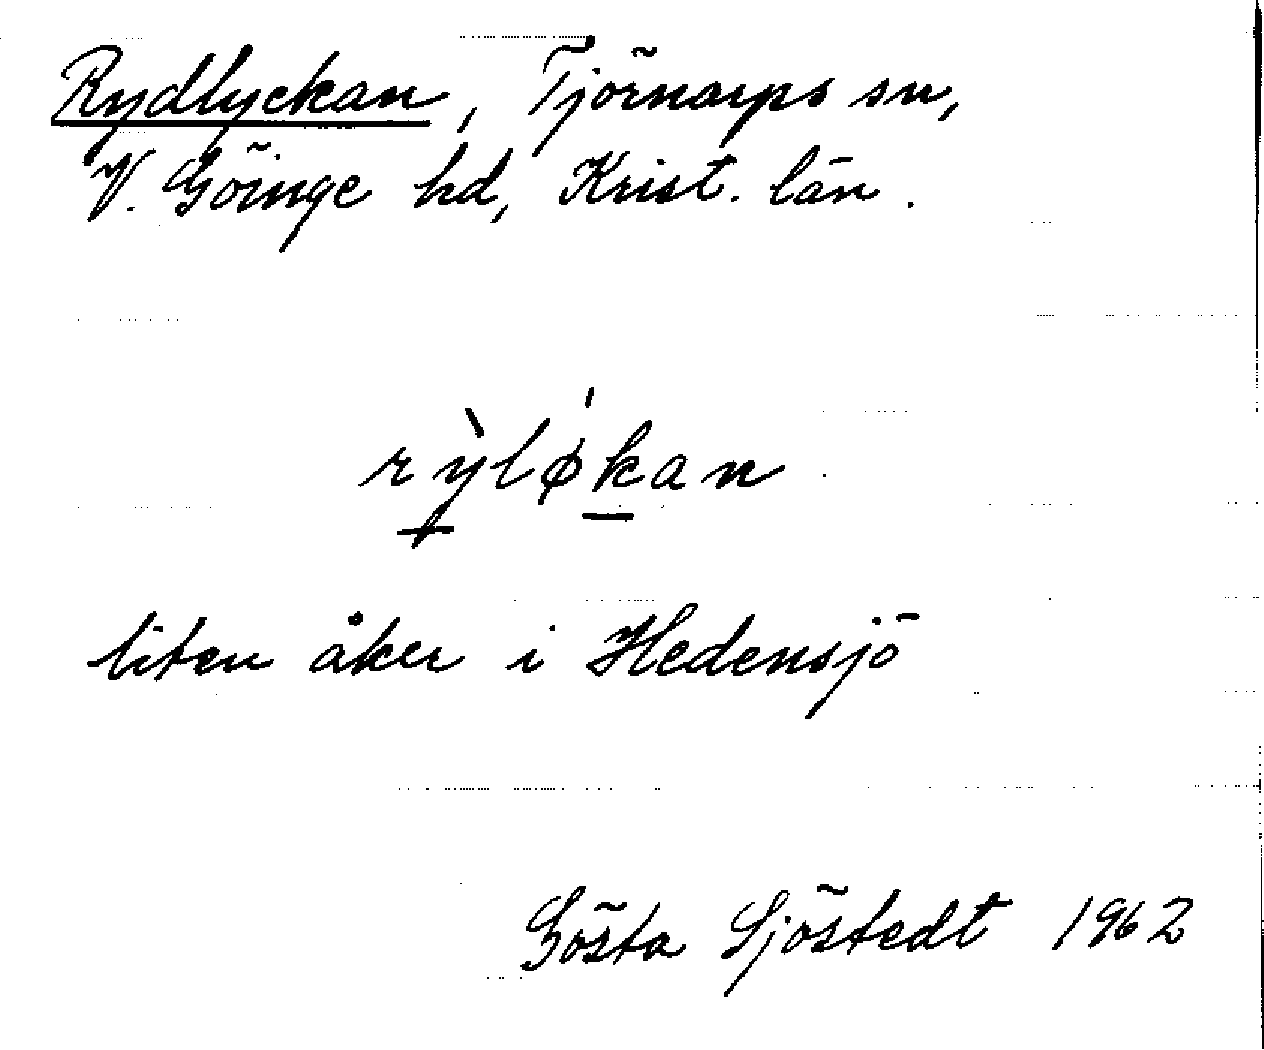 Rydlyckan, Tjörnarps sn,
V. Göinge hd, Krist. län.
rỳløkan
liten åker i Hedensjö
Gösta Sjöstedt 1962